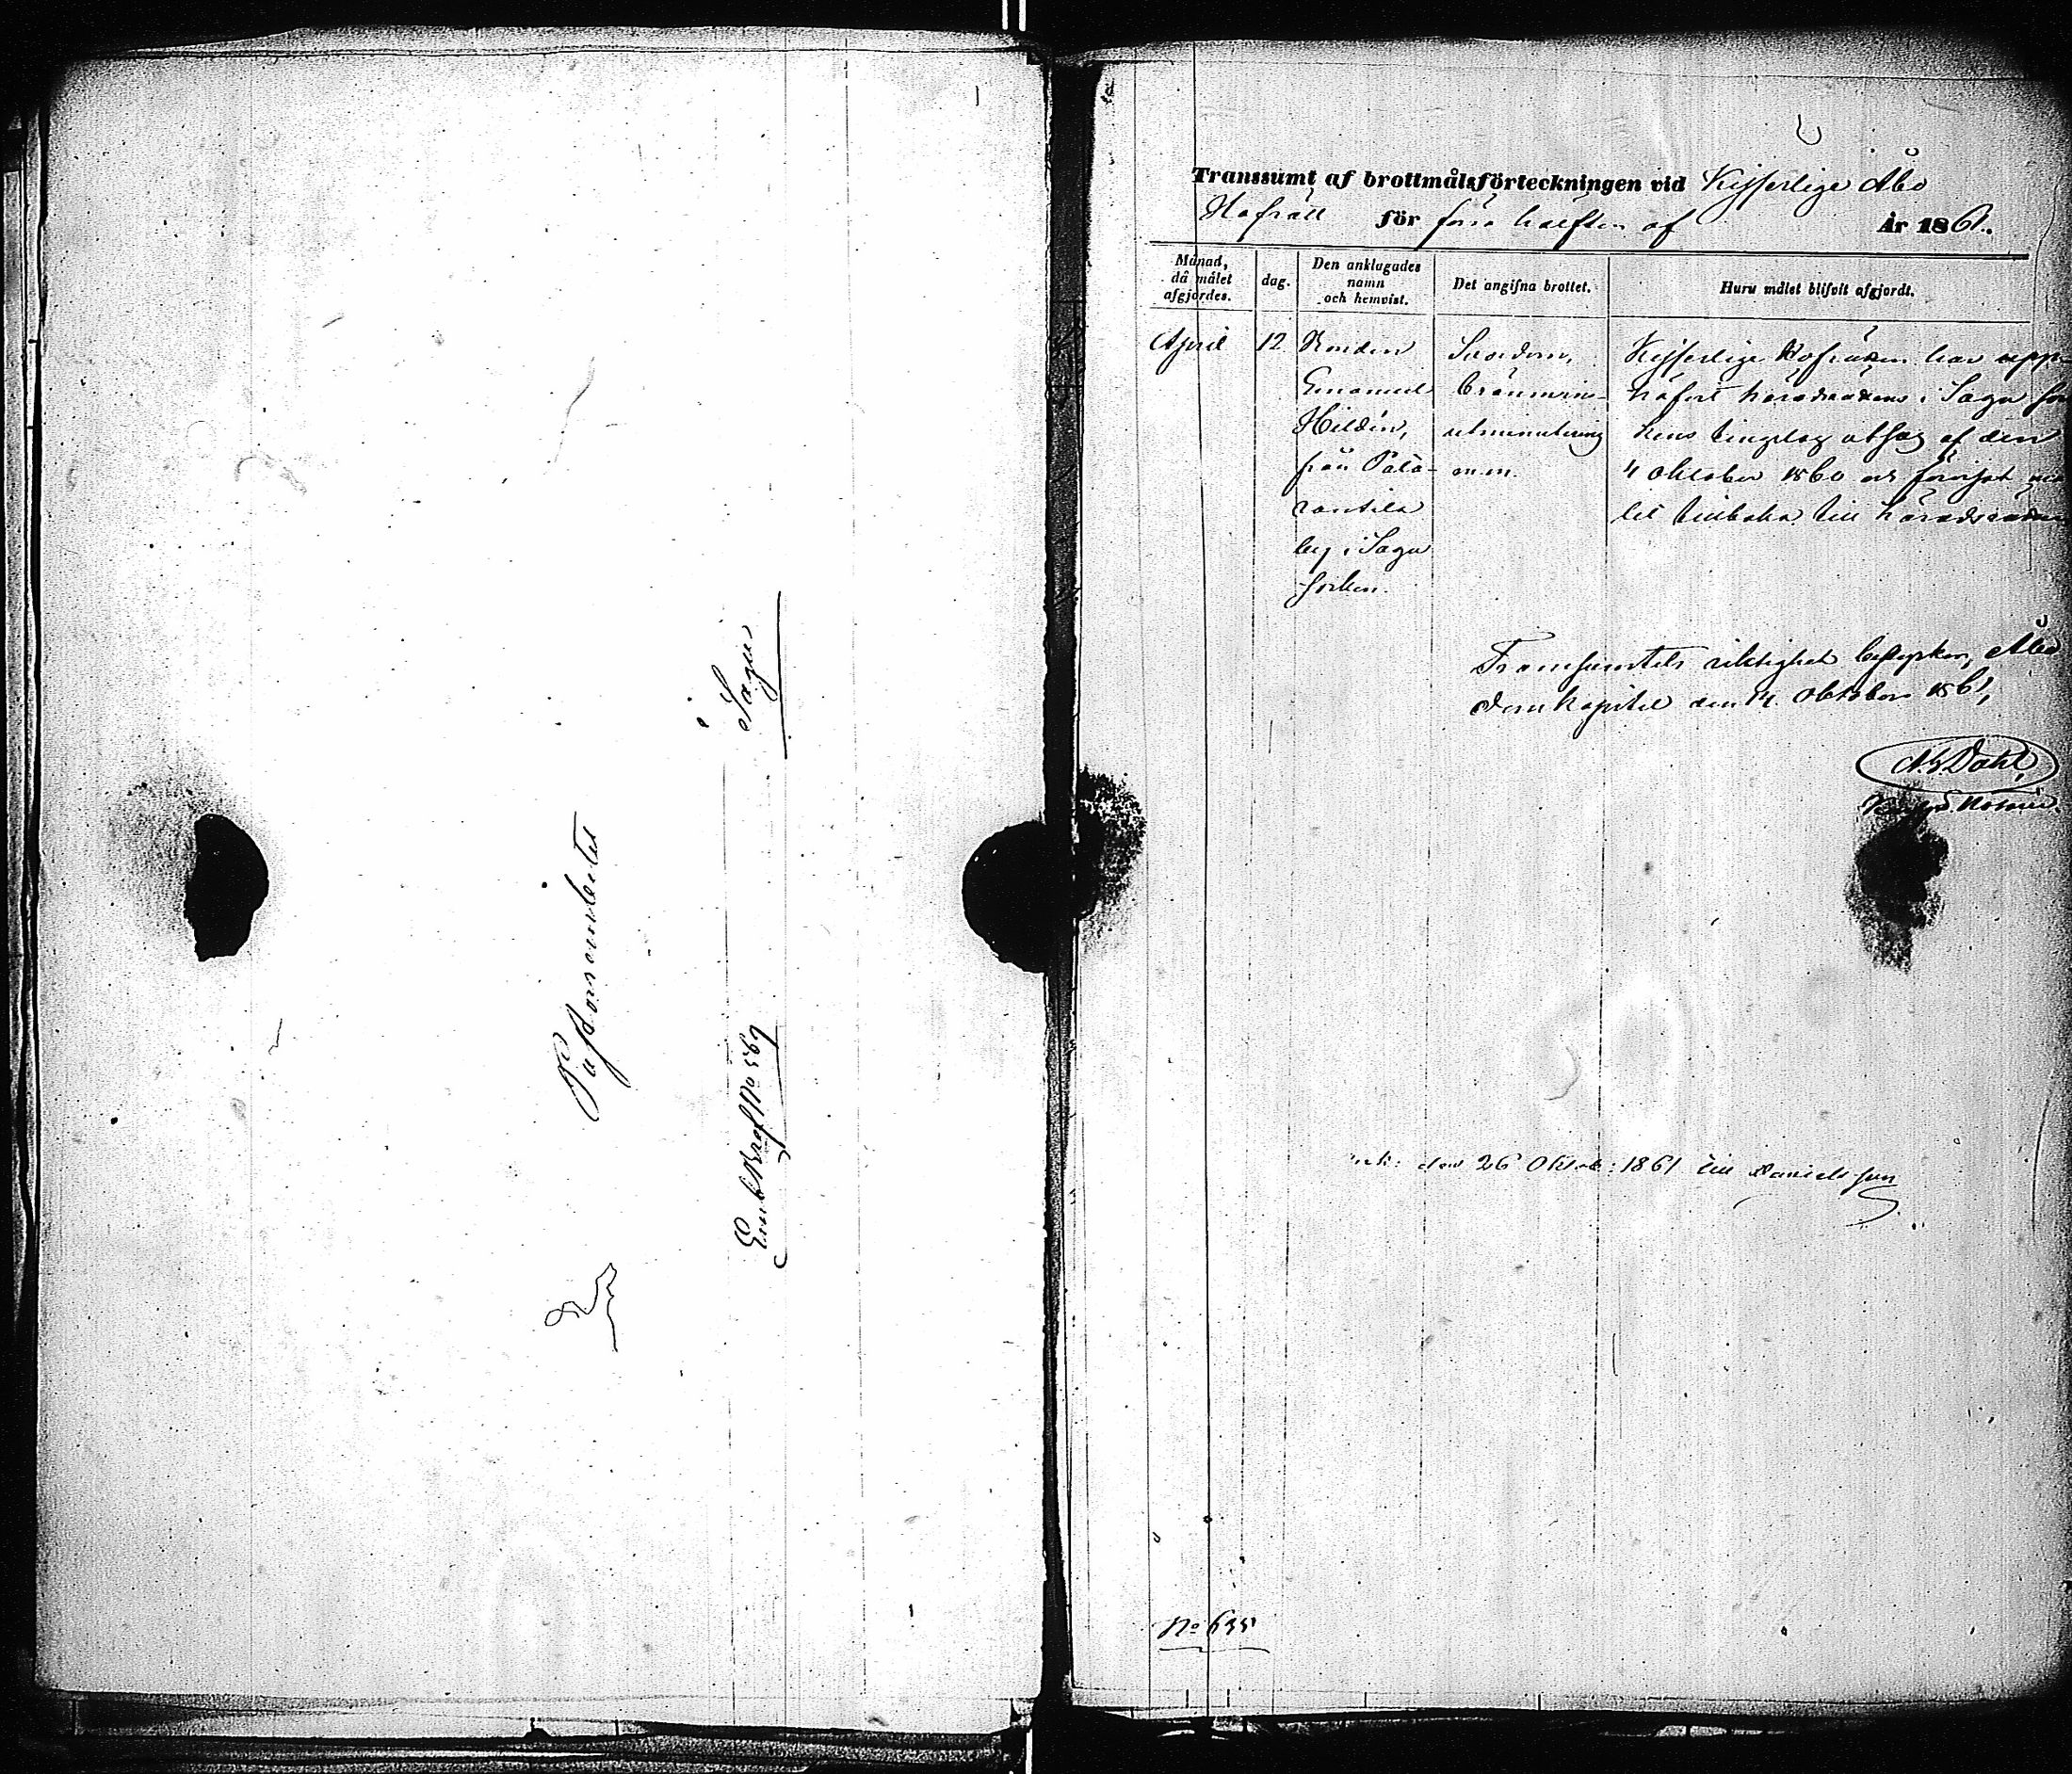 Pastorsembetet
i Sagu
Emb. Bref No 569
Transsumt af brottmålsförteckningen vid Kejserlige Åbo
Hofrätt för förra hälften af År 1861.
Månad, då målet afgjordes.
dag.
Den anklagades namn och hemvist.
Det angifna brottet.
Huru målet blifvit afgjordt.
April
12
Emanuel
Hildén,
från Pala-
rantila
by i Sagu
socken.
Svordom,
bränvins-
utminutering
m.m.
Kejserlige Hofrätten har upp-
häfvit häradsrättens i Sagu soc
kens tingslag utslag af den
4 Oktober 1860 och förvisat må
let tillbaka till häradsrätten
Transsumtets riktighet bestyrker, Åbo
Domkapitel den 14 Oktober 1861,
Dahl,
Notarie.
den 26 Oktob: 1861 till Danielsson
No 635